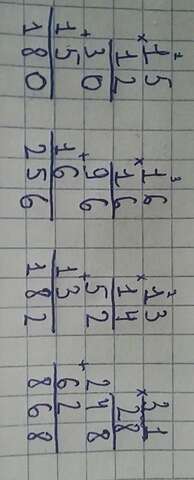 1
15
×12
30
+15
180
3
16
×16
96
+16
256
1
13
×14
52
+13
182
31
×28
248
+62
868